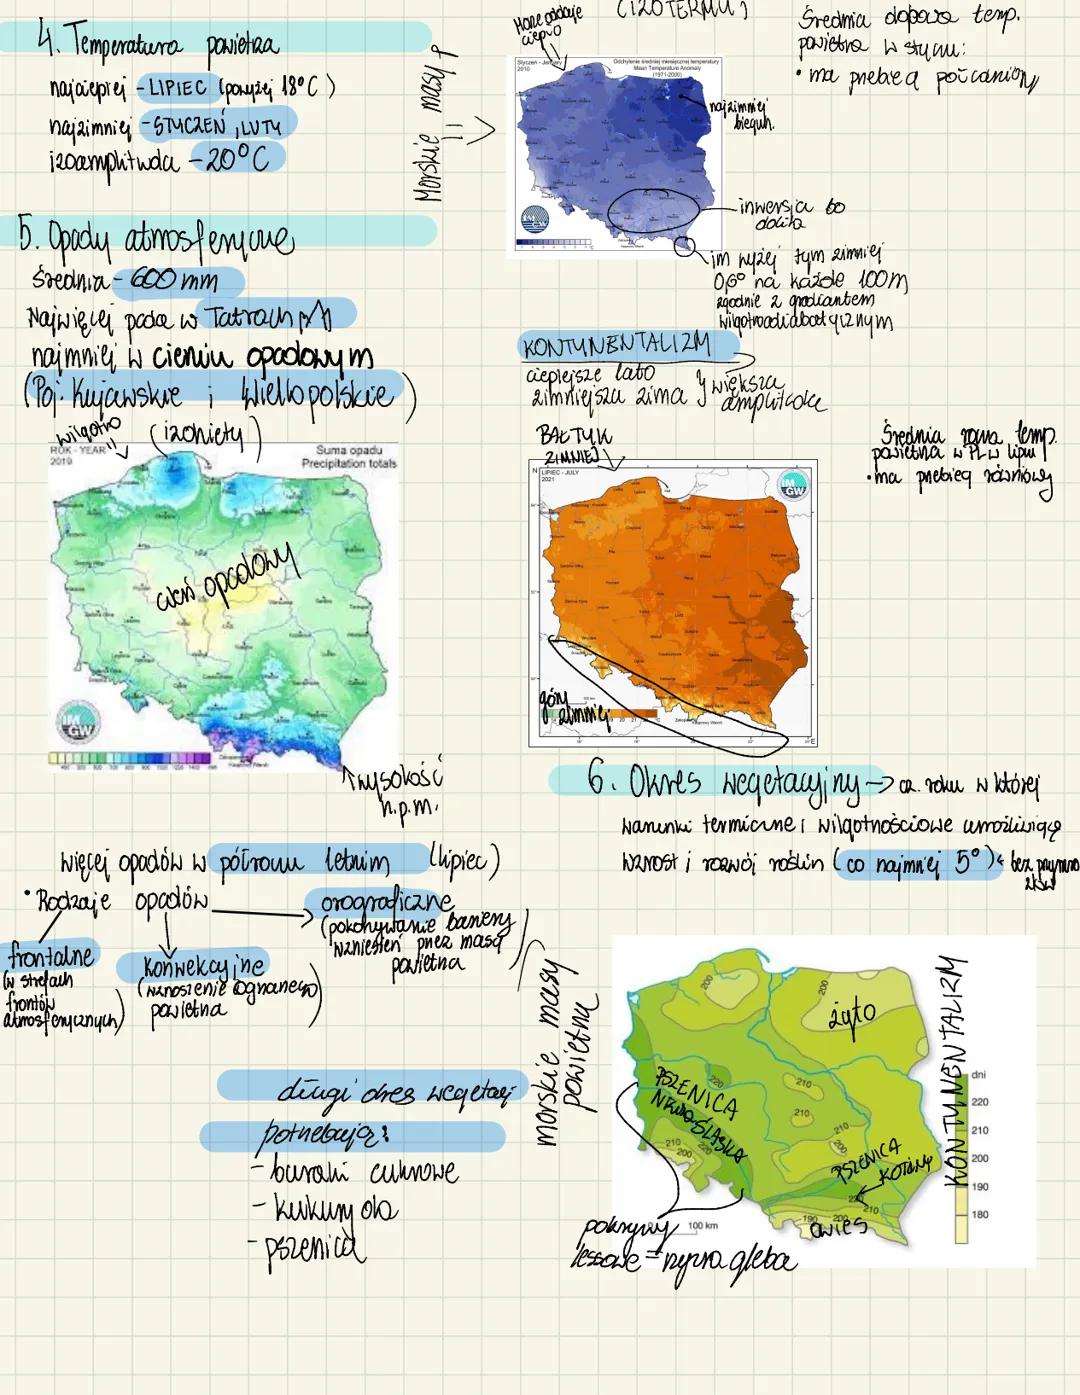 4. Temperatura powietrza
najcieplej - LIPIEC (powyżej 18°C)
najzimniej - STYCZEŃ, LUTY
izoamplituda - 20°C
Morskie masy p
Morze oddaje
ciepło
(IZOTERMY)
Średnia dobowa temp.
powietrza w styczniu:
• ma przebieg południowy
Styczeń - January
2010
Odchylenie średniej miesięcznej temperatury
Mean Temperature Anomaly
(1971-2000)
najzimniej
biegun.
inwersja bo
dolina
im wyżej tym zimniej
0,6° na każde 100m
zgodnie z gradientem
wilgotnoadiabatycznym
5. Opady atmosferyczne
Średnia - 600 mm
Najwięcej pada w Tatrach
najmniej w cieniu opadowym
(Poj. Kujawskie i Wielkopolskie)
wilgotno
(izohiety)
ROK - YEAR
2019
Suma opadu
Precipitation totals
cień opadowy
IM
GW
wysokość
n.p.m.
KONTYNENTALIZM
cieplejsze lato
zimniejsza zima } większa
amplituda
BAŁTYK
ZIMNIEJ
LIPIEC - JULY
2021
IM
GW
góry
zimniej
Średnia roczna temp.
powietrza w PL w lipcu
• ma przebieg równikowy
6. Okres wegetacyjny → cz. roku w której
warunki termiczne i wilgotnościowe umożliwiają
wzrost i rozwój roślin (co najmniej 5°) ← bez przymrozków
więcej opadów w półroczu letnim (lipiec)
• Rodzaje opadów
frontalne
(w strefach
frontów
atmosferycznych)
konwekcyjne
(wznoszenie ogrzanego
powietrza)
orograficzne
(pokonywanie bariery
wzniesień przez masę
powietrza)
długi okres wegetacji
potrzebują:
- buraki cukrowe
- kukurydza
- pszenica
morskie masy
powietrza
200
200
żyto
PSZENICA
220
210
210
210
200
PSZENICA
210
200
220
220
210
190
200
owies
KONTYNENTALIZM
dni
220
210
200
190
180
100 km
pokrywy
lessowe = żyzna gleba